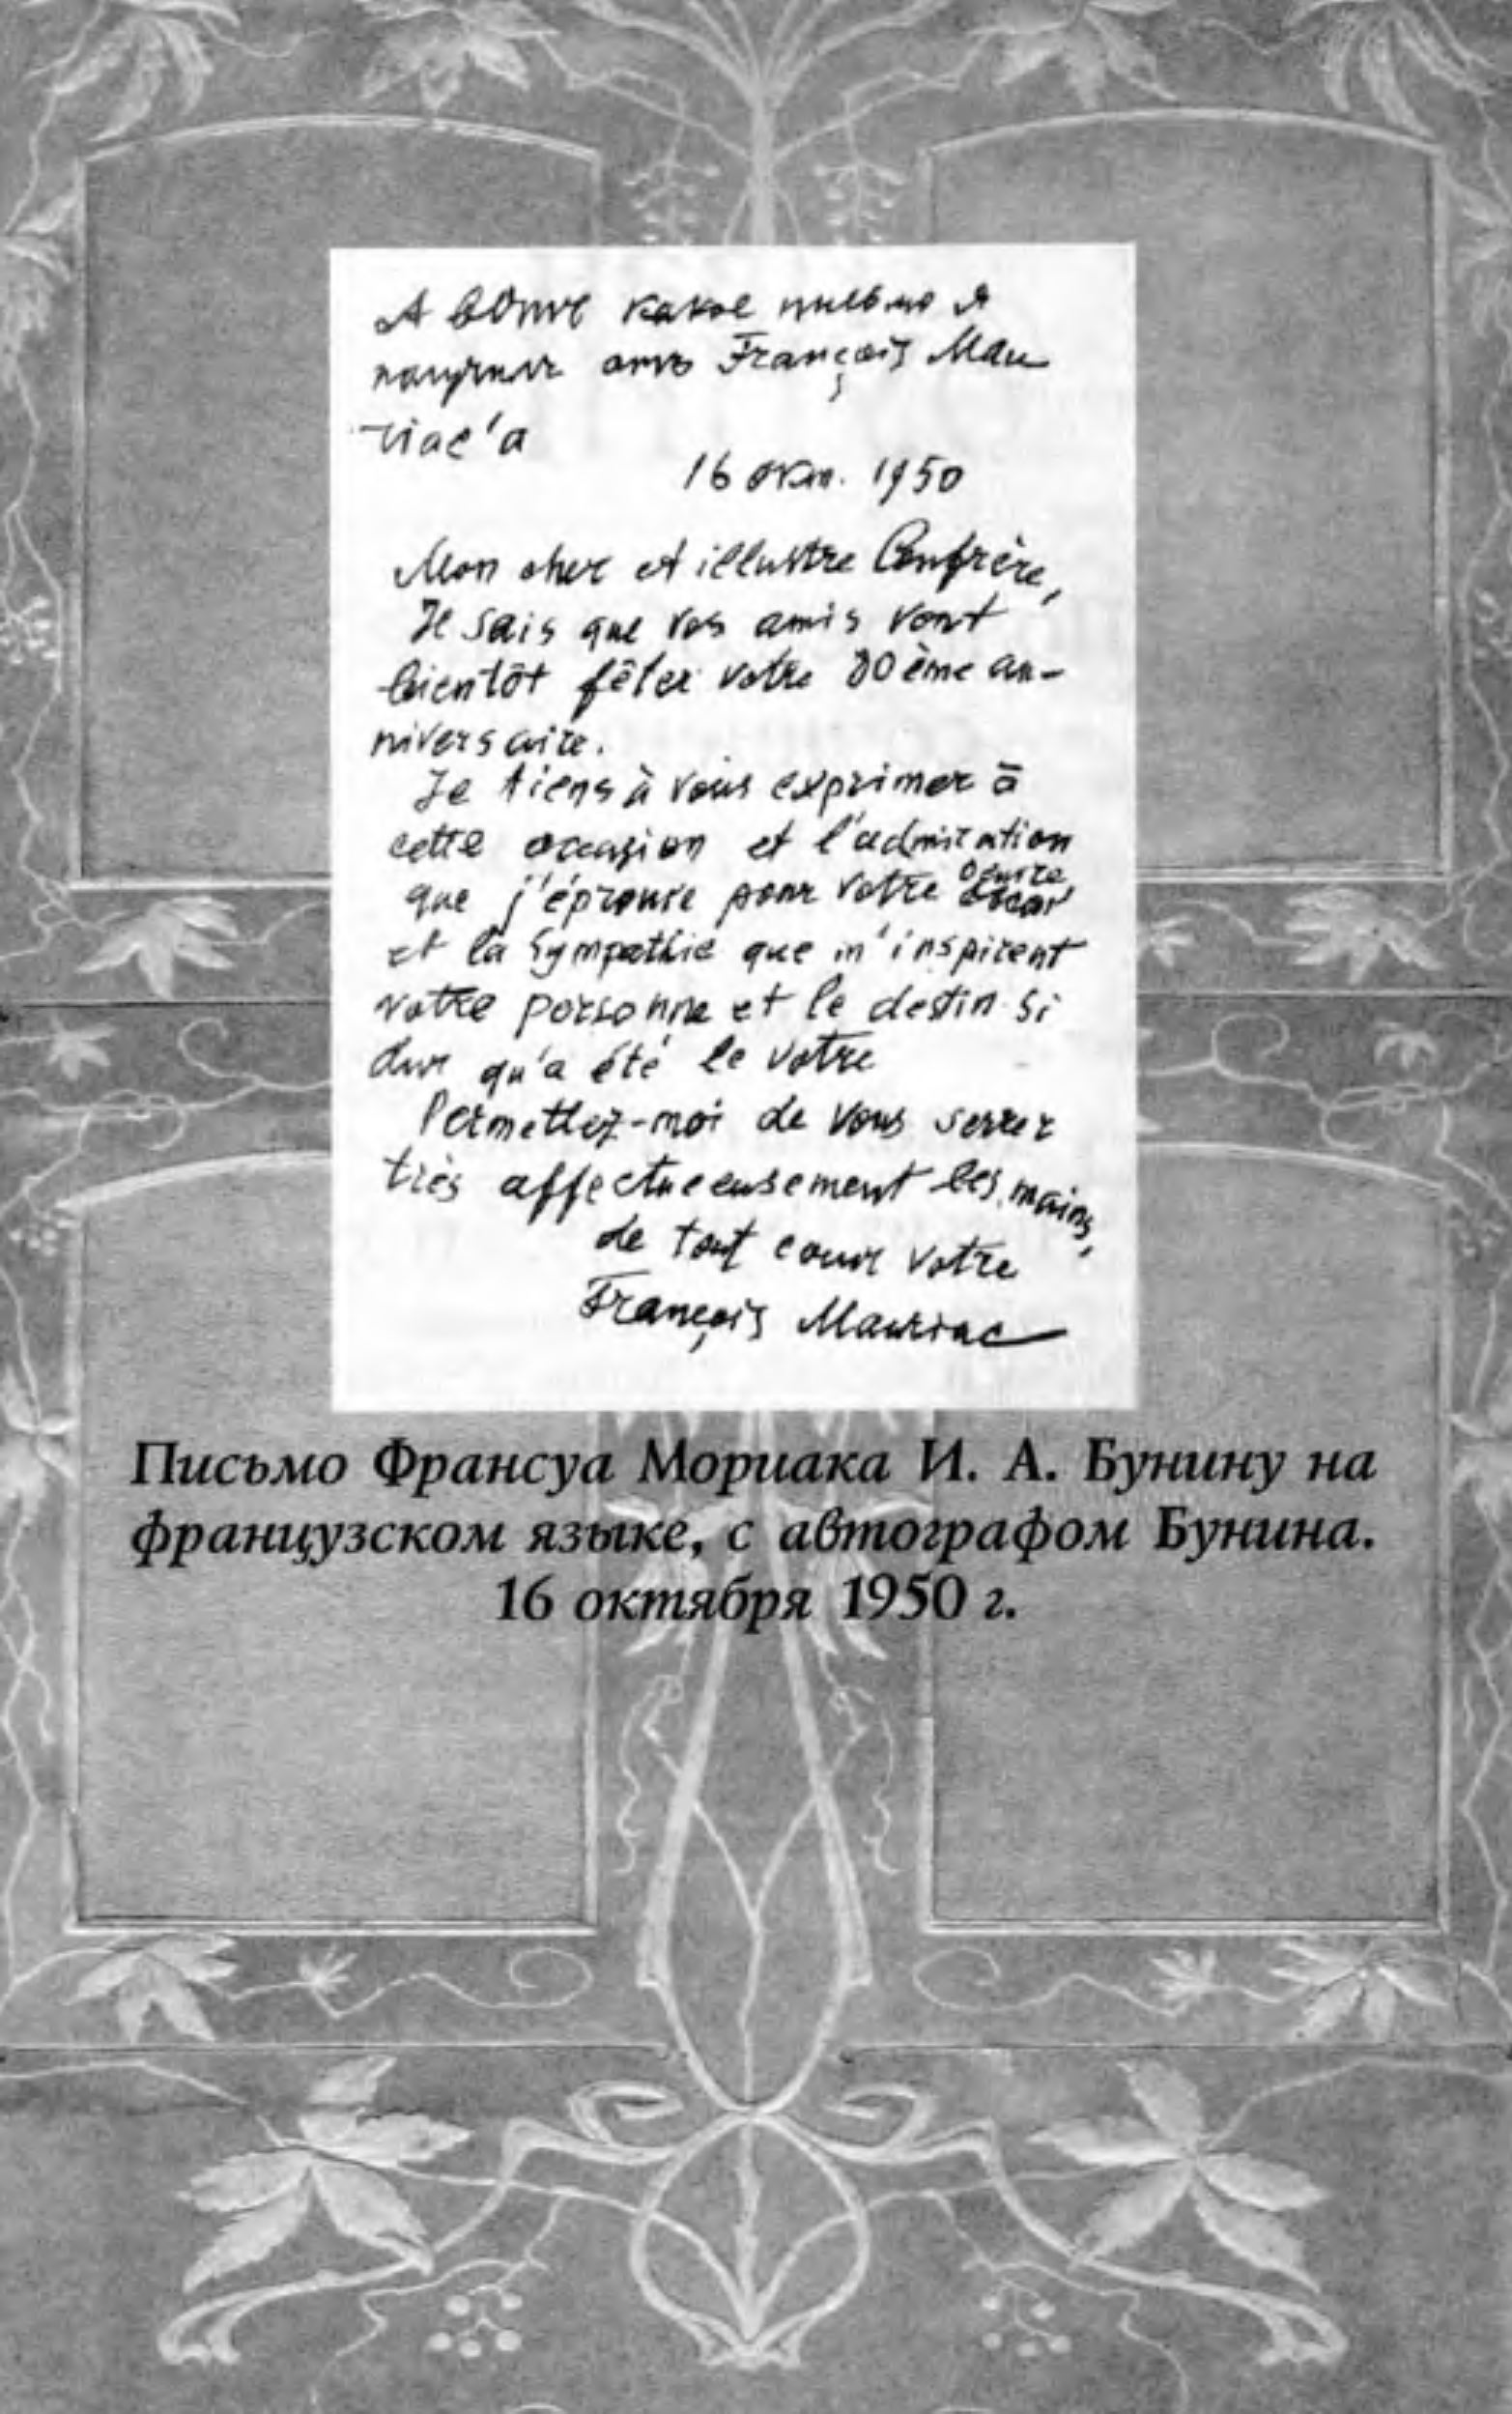 А вотъ какое письмо я
получилъ отъ François Mau
riac'a
16 окт. 1950
Mon cher et illustre Confrère,
Je sais que vos amis vont
bientôt fêter votre 80ème an-
niversaire.
Je tiens à vous exprimer à
cette occasion et l'admiration
que j'éprouve pour votre oeuvre
et la sympathie que m'inspirent
votre personne et le destin si
dur qu'a été le vôtre
Permettez-moi de vous serrer
très affectueusement les mains,
de tout coeur votre
François Mauriac
Письмо Франсуа Мориака И. А. Бунину на
французском языке, с автографом Бунина.
16 октября 1950 г.